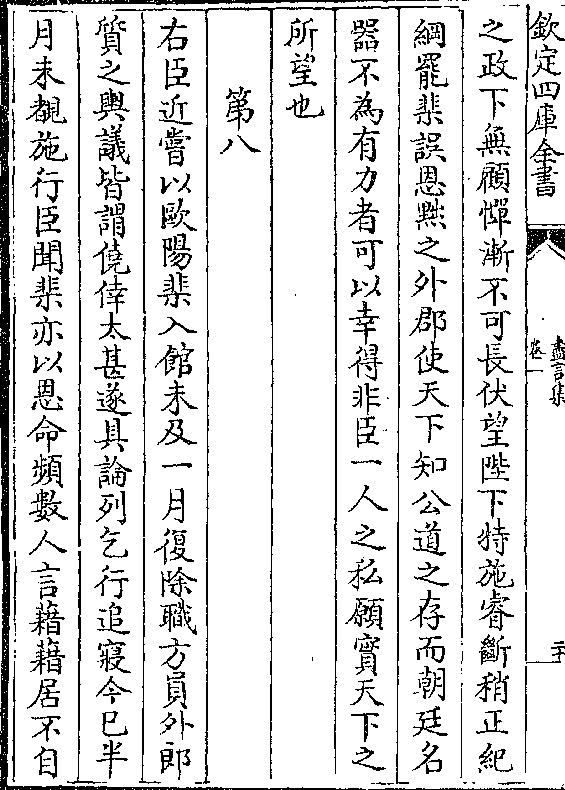 欽定四庫全書
盡言集
卷一
二十
之政下無顧憚漸不可長伏望陛下特施睿斷稍正紀
綱罷棐誤恩黜之外郡使天下知公道之存而朝廷名
器不為有力者可以幸得非臣一人之私願實天下之
所望也
第八
右臣近嘗以歐陽棐入館未及一月復除職方員外郎
質之輿議皆謂僥倖太甚遂具論列乞行追寢今已半
月未覩施行臣聞棐亦以恩命頻數人言藉藉居不自